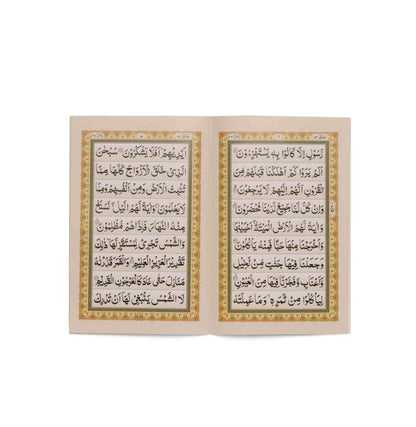 رَسُوْلٍ اِلَّا كَانُوْا بِهٖ يَسْتَهْزِءُوْنَ
اَلَمْ يَرَوْا كَمْ اَهْلَكْنَا قَبْلَهُمْ مِنَ
الْقُرُوْنِ اَنَّهُمْ اِلَيْهِمْ لَا يَرْجِعُوْنَ
وَاِنْ كُلٌّ لَّمَّا جَمِيْعٌ لَّدَيْنَا مُحْضَرُوْنَ
وَاٰيَةٌ لَّهُمُ الْاَرْضُ الْمَيْتَةُ اَحْيَيْنٰهَا
وَاَخْرَجْنَا مِنْهَا حَبًّا فَمِنْهُ يَاْكُلُوْنَ
وَجَعَلْنَا فِيْهَا جَنّٰتٍ مِّنْ نَّخِيْلٍ
وَّاَعْنَابٍ وَّفَجَّرْنَا فِيْهَا مِنَ الْعُيُوْنِ
لِيَاْكُلُوْا مِنْ ثَمَرِهٖ وَمَا عَمِلَتْهُ
اَيْدِيْهِمْ اَفَلَا يَشْكُرُوْنَ سُبْحٰنَ
الَّذِيْ خَلَقَ الْاَزْوَاجَ كُلَّهَا مِمَّا
تُنْۢبِتُ الْاَرْضُ وَمِنْ اَنْفُسِهِمْ وَمِمَّا
لَا يَعْلَمُوْنَ وَاٰيَةٌ لَّهُمُ الَّيْلُ نَسْلَخُ
مِنْهُ النَّهَارَ فَاِذَا هُمْ مُّظْلِمُوْنَ
وَالشَّمْسُ تَجْرِيْ لِمُسْتَقَرٍّ لَّهَا ذٰلِكَ
تَقْدِيْرُ الْعَزِيْزِ الْعَلِيْمِ وَالْقَمَرَ قَدَّرْنٰهُ
مَنَازِلَ حَتّٰى عَادَ كَالْعُرْجُوْنِ الْقَدِيْمِ
لَا الشَّمْسُ يَنْۢبَغِيْ لَهَا اَنْ تُدْرِكَ